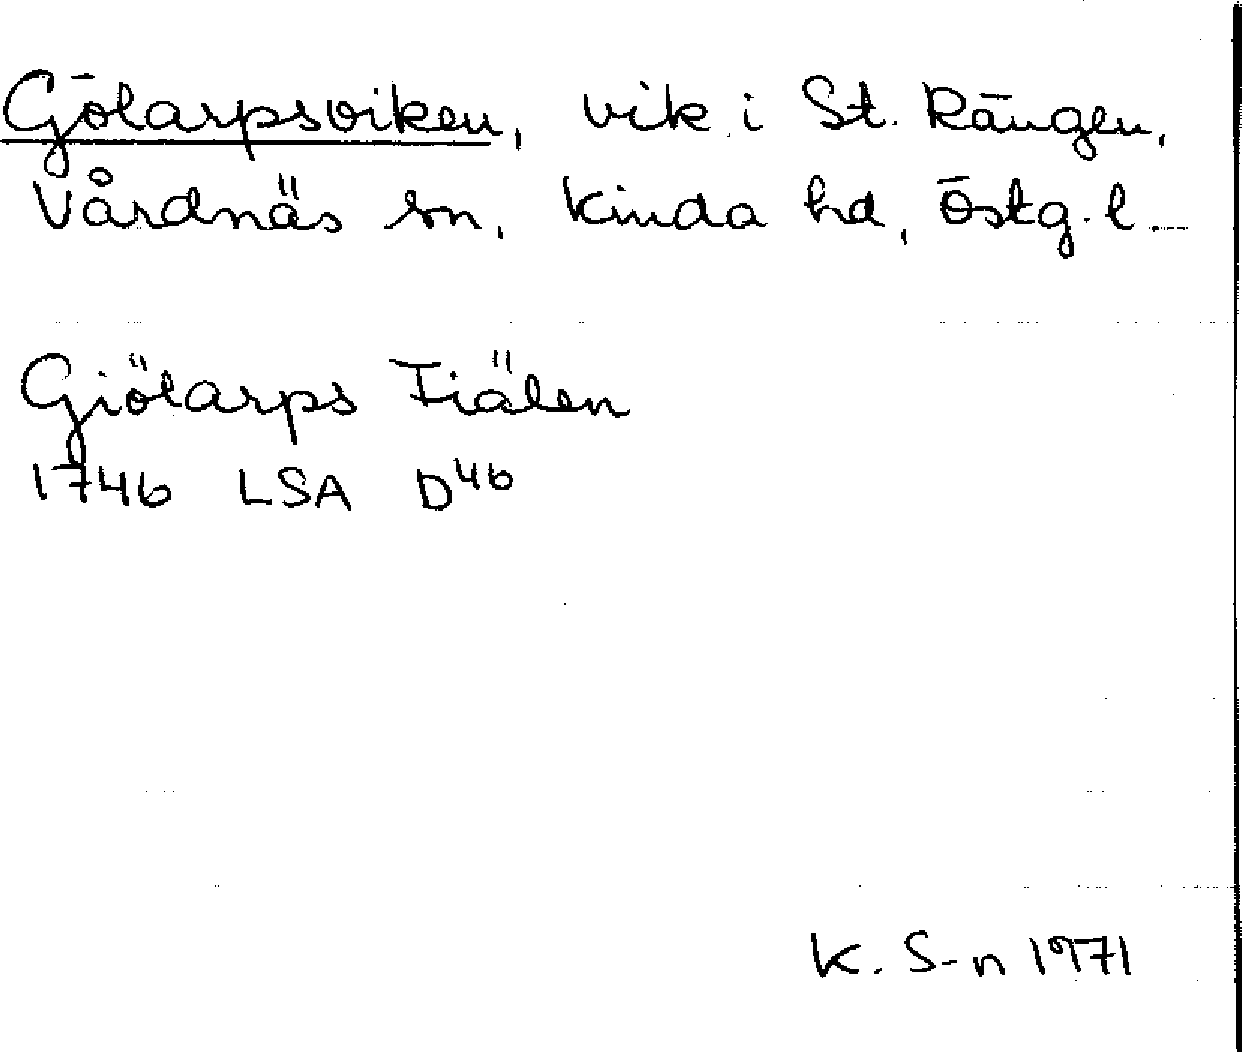 Gölarpsviken, vik i St. Rängen,
Vårdnäs sn, Kinda hd, Östg. l.
Giölarps Fiälen
1746 LSA D46
K. S-n 1971